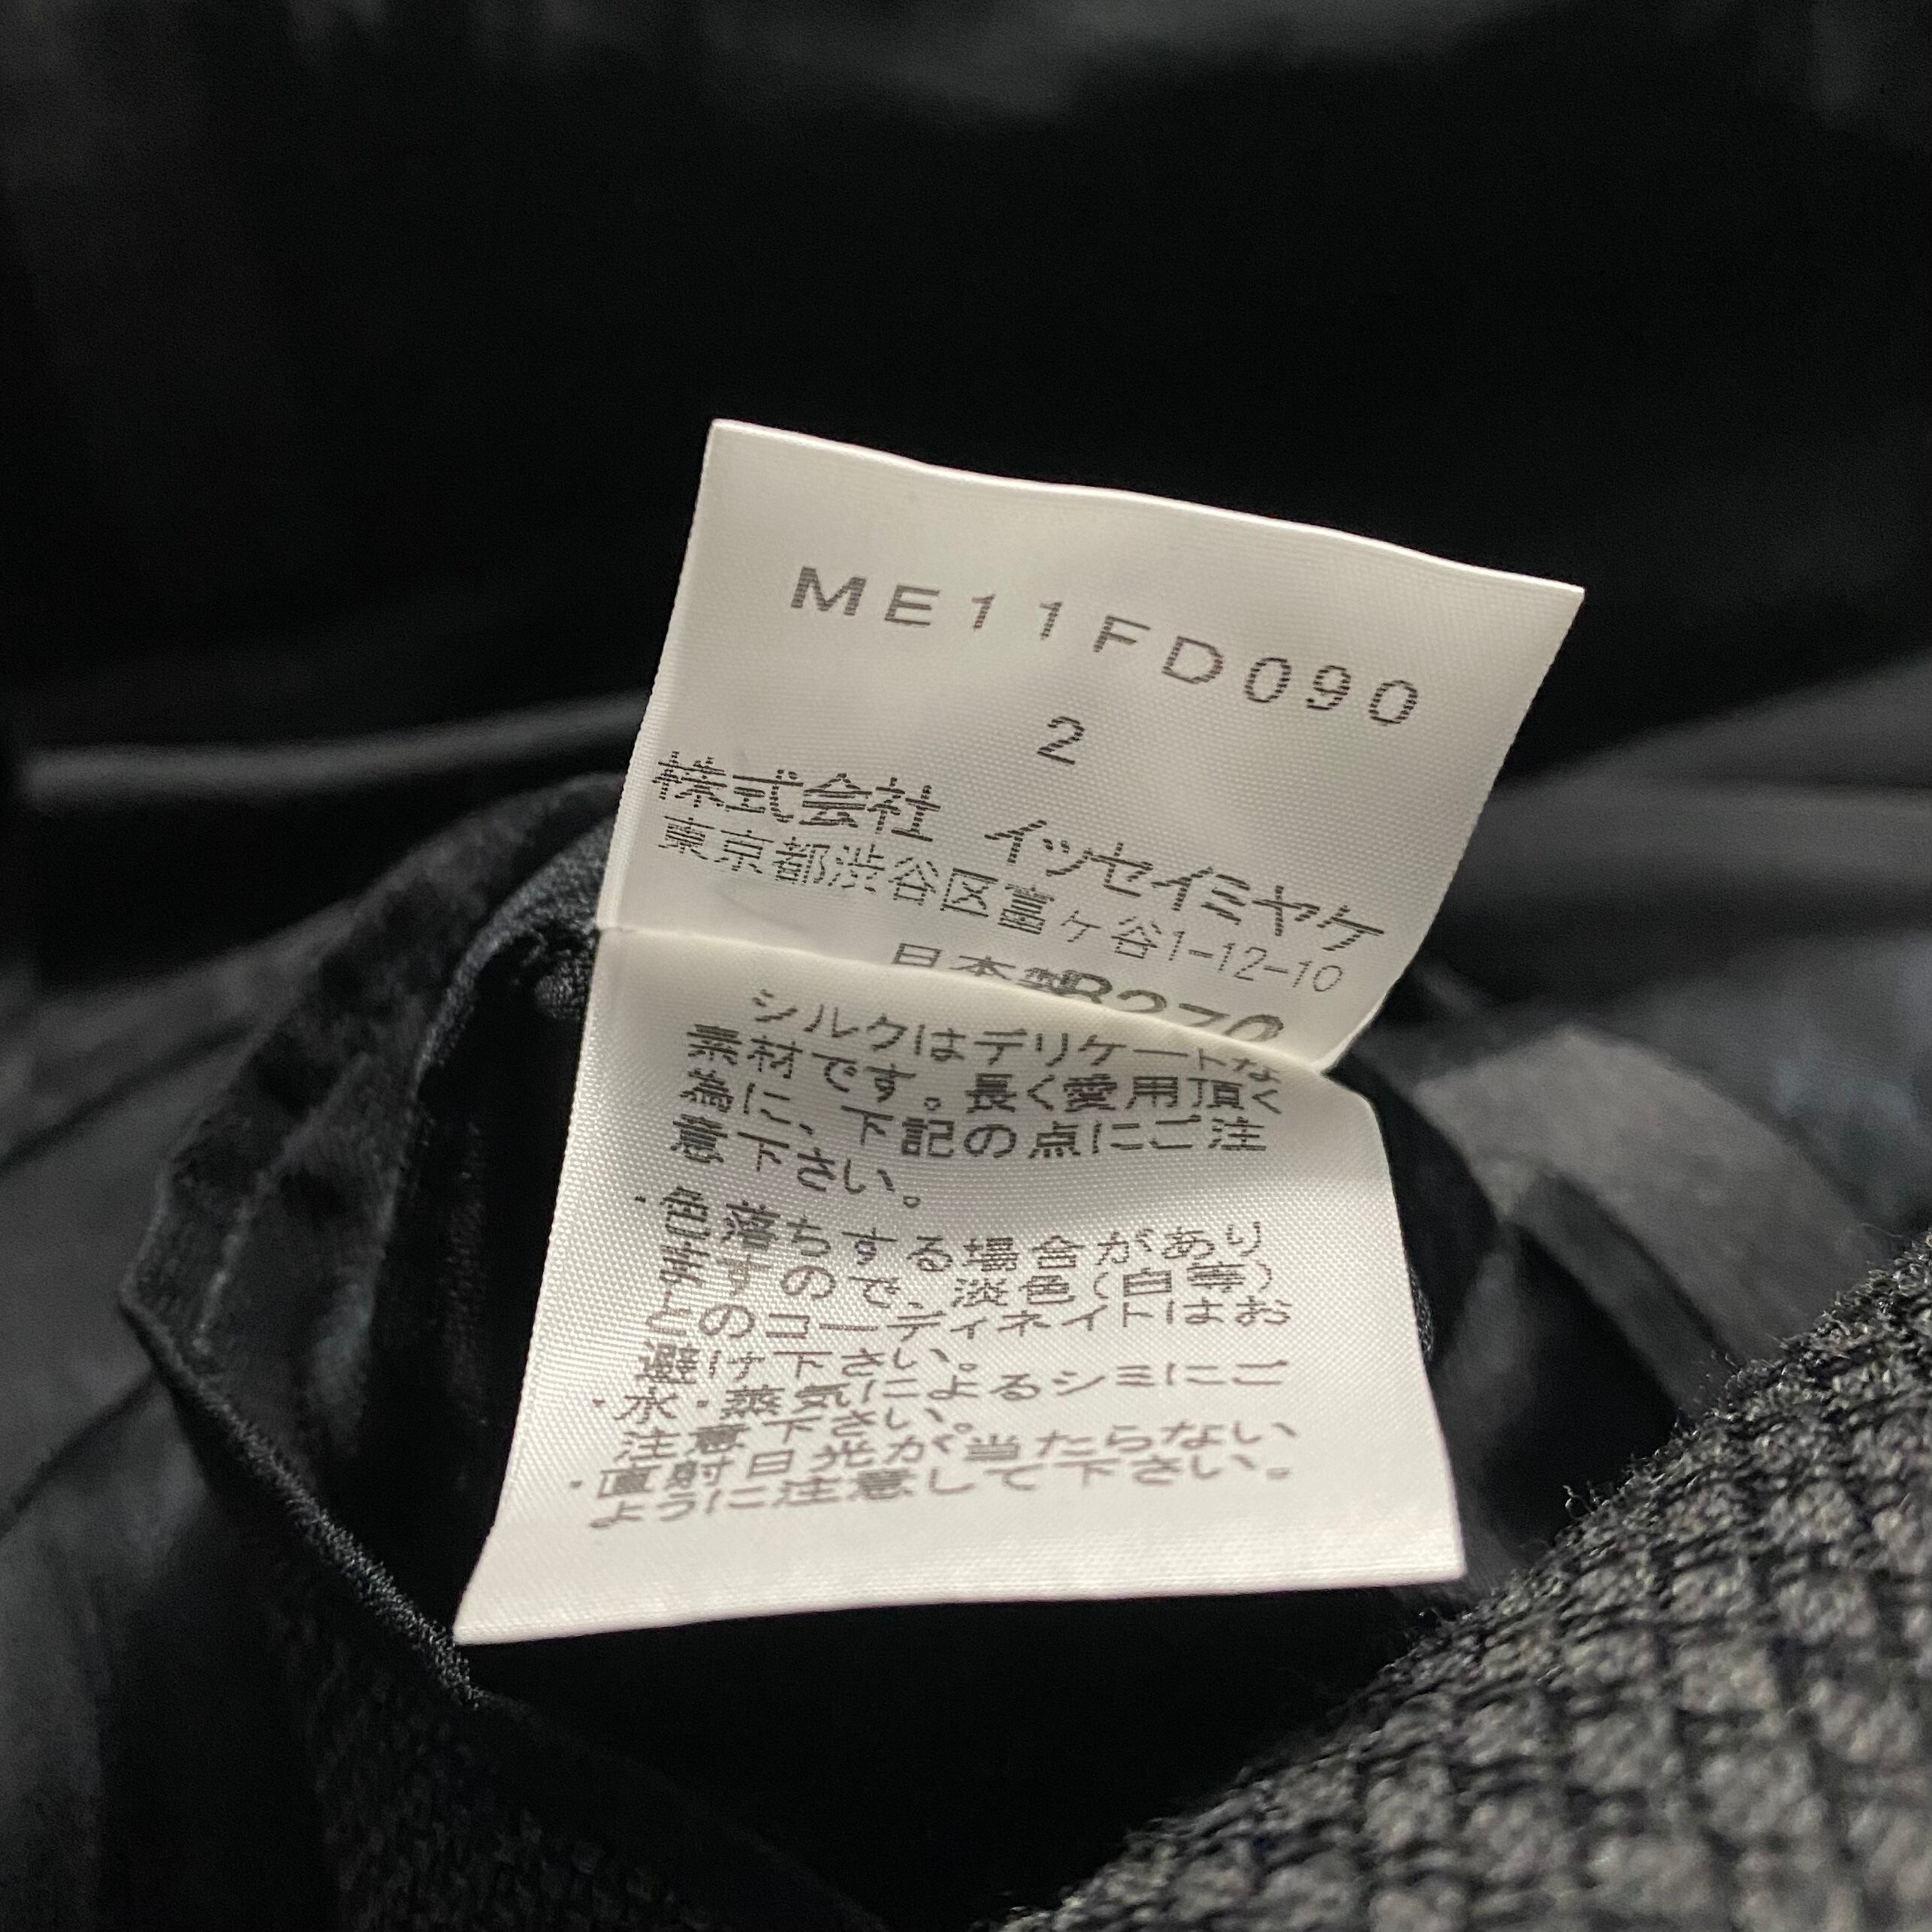 ME11FD090
2
株式会社 イッセイミヤケ
東京都渋谷区富ヶ谷1-12-10
日本製
シルクはデリケートな
素材です。長く愛用頂く
為に、下記の点にご注
意下さい。
・色落ちする場合があり
ますので、淡色(白等)
とのコーディネイトはお
避け下さい。
・水・蒸気によるシミにご
注意下さい。
・直射日光が当たらない
ように注意して下さい。